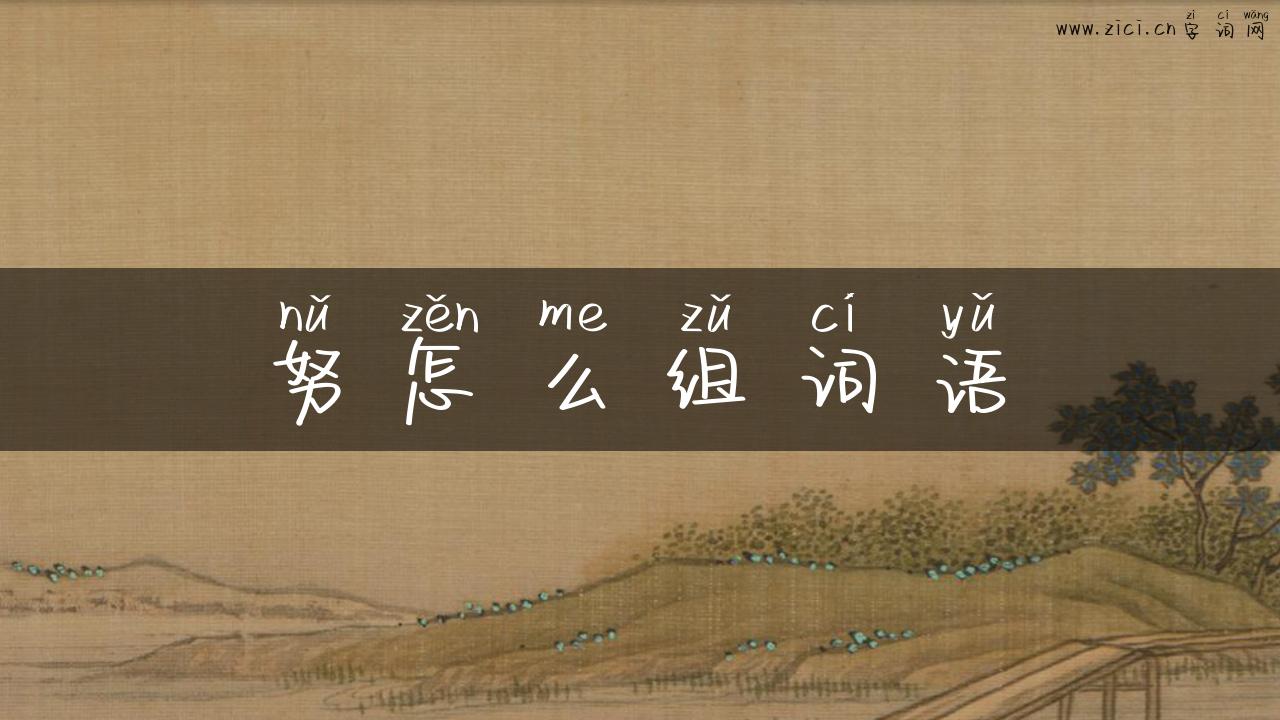 zi ci wǎng
www.zici.cn字词网
nǔ zěn me zǔ cí yǔ
努怎么组词语